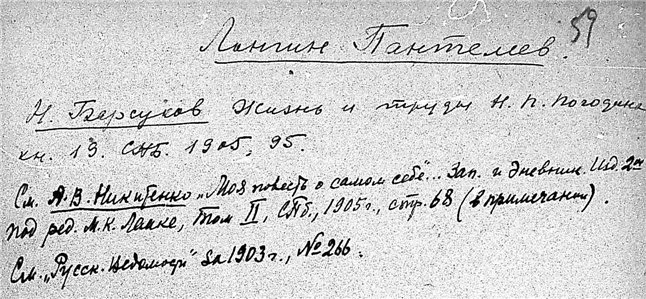 59
Лонгин Пантелеев.
Н. Барсуков Жизнь и труды Н. П. Погодина
кн. 19. СПБ. 1905, 95.
См. А. В. Никитенко „Моя повесть о самом себе"... Зап. и Дневник. Изд. 2ое
под ред. М. К. Лемке, том II, СПб., 1905 г., стр. 68 (в примечании).
См. „Русск. Ведомости" за 1903 г., № 266.